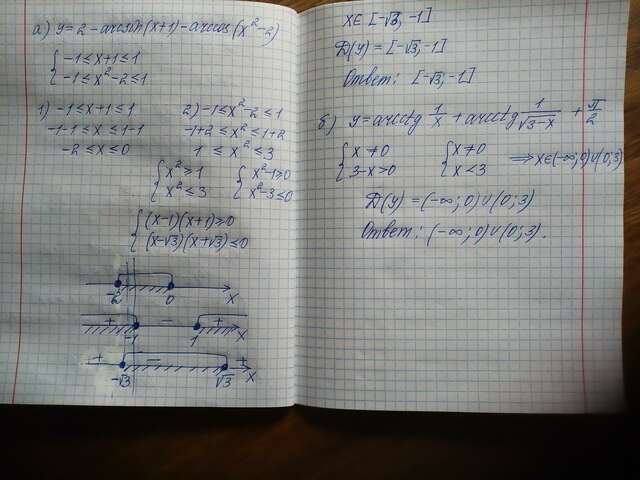 а) y = 2 - arcsin(x+1) - arccos(x²-2)
{ -1≤x+1≤1
{ -1≤x²-2≤1
1) -1≤x+1≤1
-1-1≤x≤1-1
-2≤x≤0
2) -1≤x²-2≤1
-1+2≤x²≤1+2
1≤x²≤3
{ x²≥1
{ x²≤3
{ x²-1≥0
{ x²-3≤0
{ (x-1)(x+1)≥0
{ (x-√3)(x+√3)≤0
-2 0 x
+ - +
-1 1 x
+ - +
-√3 √3 x
x∈[-√3, -1]
D(y) = [-√3, -1]
Ответ: [-√3, -1]
б) y = arcctg 1/x + arcctg 1/√3-x + π/2
{ x≠0
{ 3-x>0
{ x≠0
{ x<3
⟹ x∈(-∞; 0)∪(0; 3)
D(y) = (-∞; 0)∪(0; 3)
Ответ: (-∞; 0)∪(0; 3).